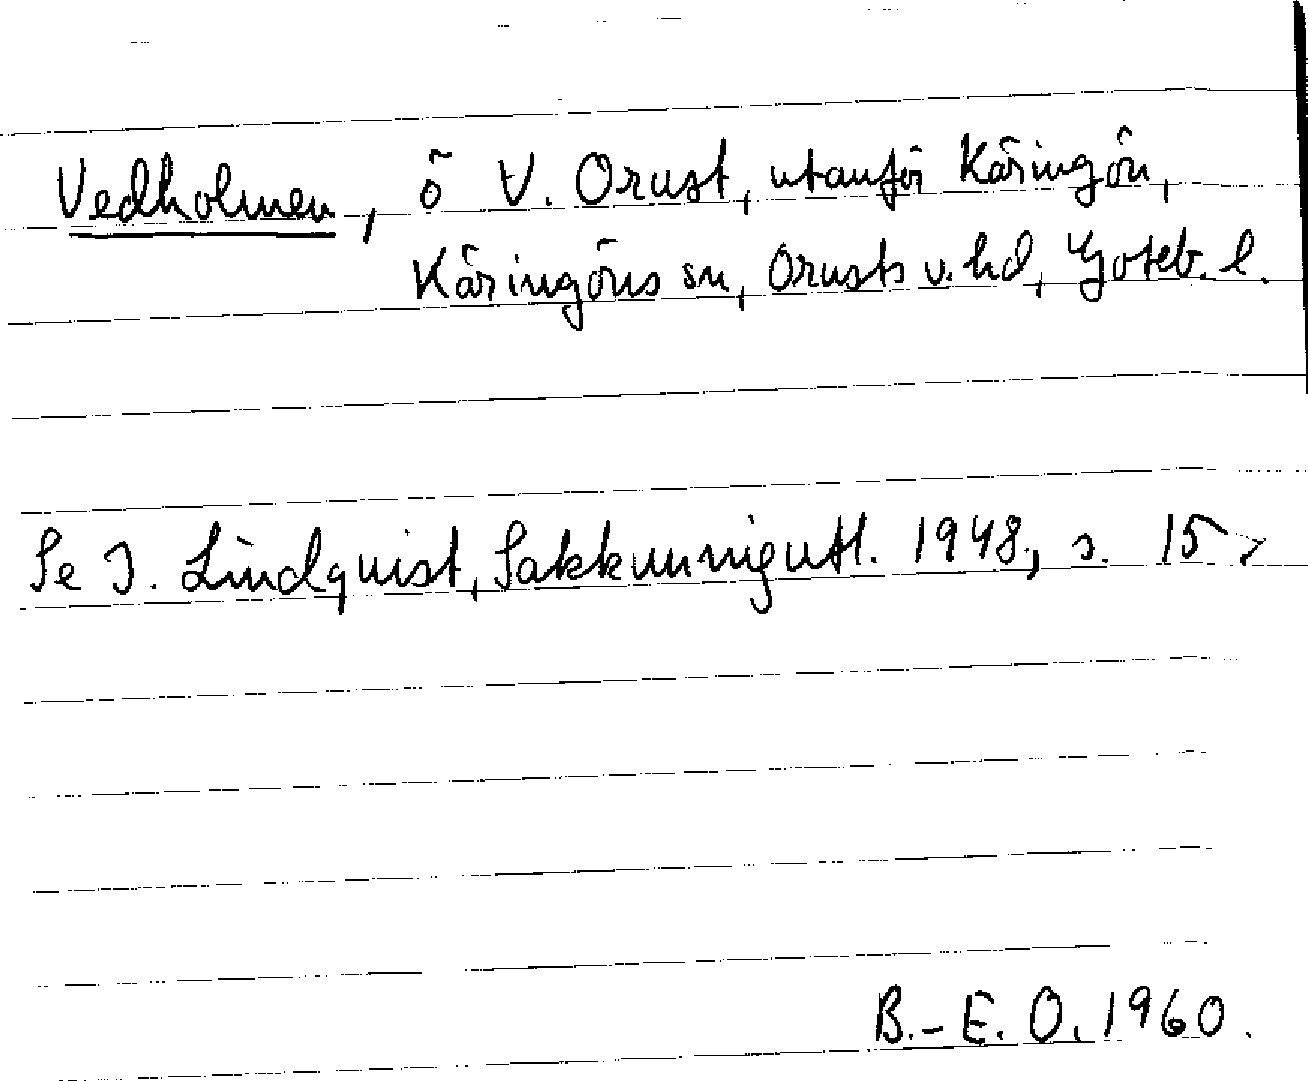 Vedholmen, ö V. Orust, utanför Käringön,
Käringöns sn, Orusts v. hd, Göteb. l.
Se I. Lindquist, Sakkunnigutl. 1948, s. 15 >
B.-E. O. 1960.